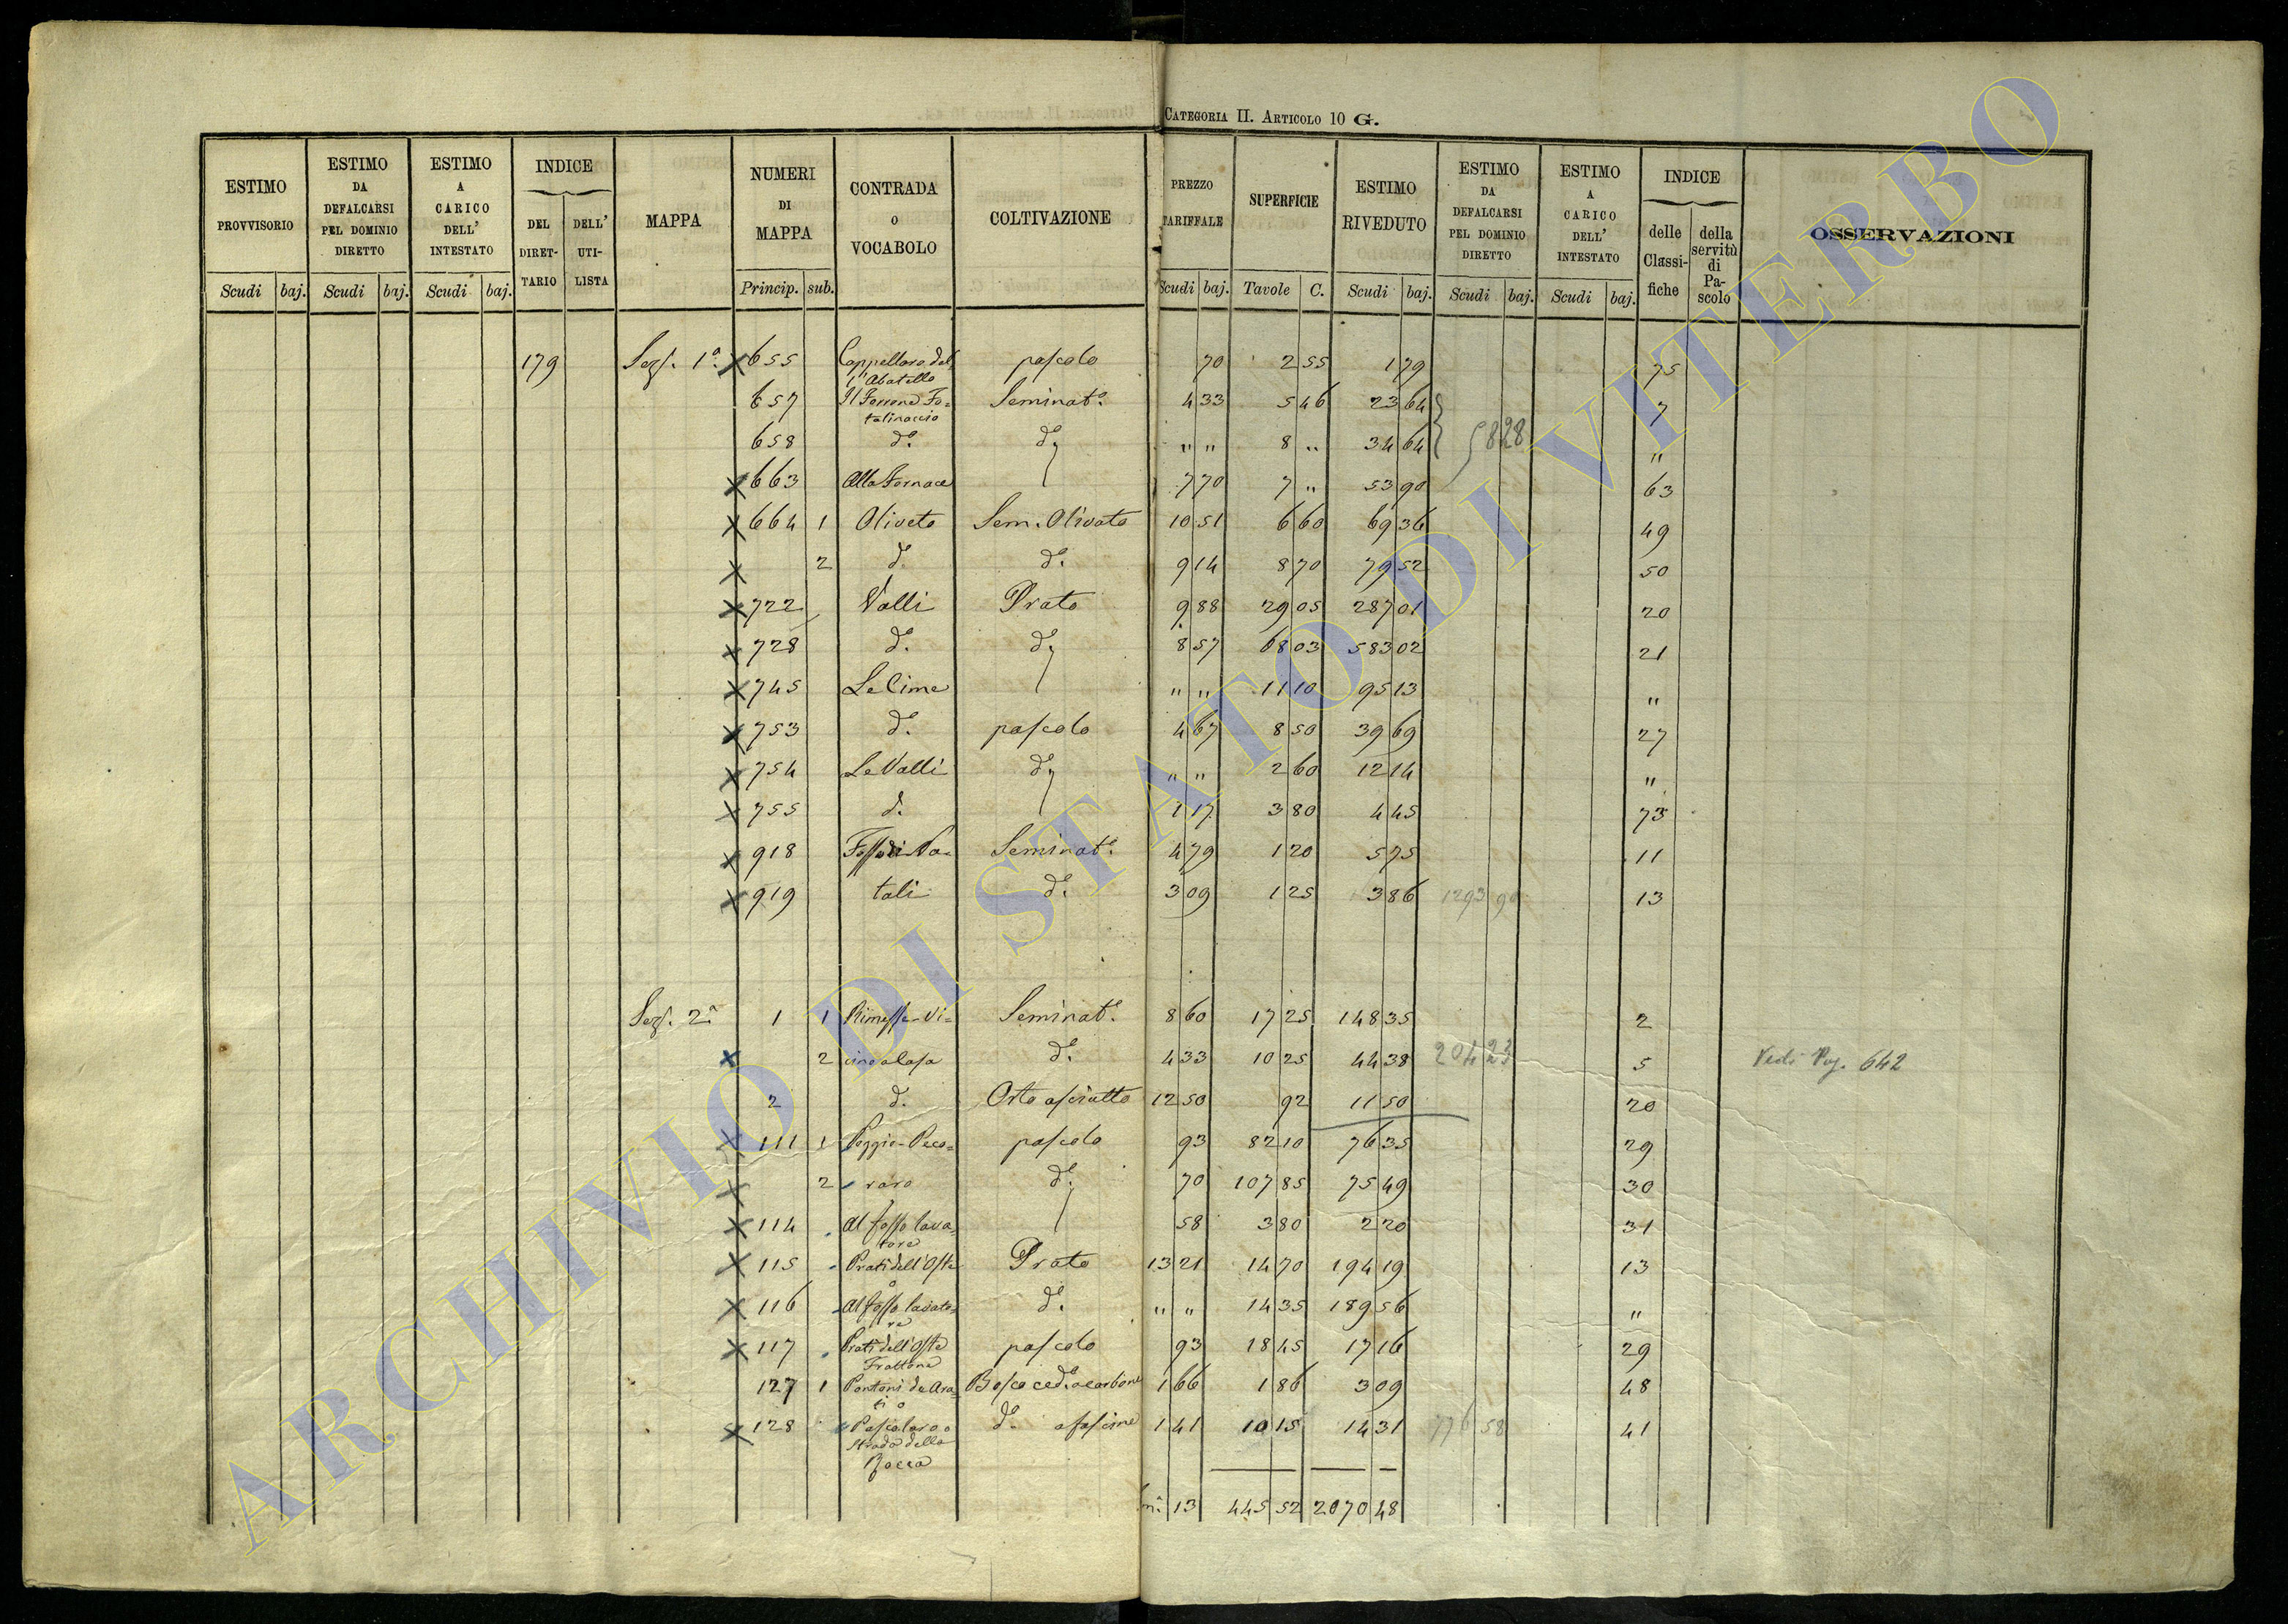 CATEGORIA II. ARTICOLO 10 G.
ESTIMO PROVVISORIO Scudi baj.
ESTIMO DA DEFALCARSI PEL DOMINIO DIRETTO Scudi baj.
ESTIMO A CARICO DELL' INTESTATO Scudi baj.
INDICE DEL DIRET-TARIO DELL' UTI-LISTA
MAPPA
NUMERI DI MAPPA Princip. sub.
CONTRADA O VOCABOLO
COLTIVAZIONE
PREZZO TARIFFALE Scudi baj.
SUPERFICIE Tavole C.
ESTIMO RIVEDUTO Scudi baj.
ESTIMO DA DEFALCARSI PEL DOMINIO DIRETTO Scudi baj.
ESTIMO A CARICO DELL' INTESTATO Scudi baj.
INDICE delle Classi-fiche della servitù di Pa-scolo
OSSERVAZIONI
179 Sez. 1ª x 655 Cappellaro del pascolo 70 2 55 1 79 75
l'Abatello
657 Il Ferrone Fo= Seminat.º 4 33 5 46 23 64 7
talinaccio
658 d.º d.º " " 8 " 34 64 58 28 "
x 663 Alla Fornace 7 70 7 " 53 90 63
x 664 1 Oliveto Sem. Olivato 10 51 6 60 69 36 49
x 2 d.º d.º 9 14 8 70 79 52 50
x 722 Valli Prato 9 88 29 05 287 01 20
x 728 d.º d.º 8 57 68 03 583 02 21
x 745 Le Cime " " 11 10 95 13 "
x 753 d.º pascolo 4 67 8 50 39 69 27
x 754 Le Valli d.º " " 2 60 12 14 "
x 755 d.º 1 17 3 80 4 45 73
x 918 Fosso di Na= Seminat.º 4 79 1 20 5 75 11
x 919 tali d.º 3 09 1 25 3 86 1293 90 13
Sez. 2ª 1 1 Rimessa-Vi= Seminat.º 8 60 17 25 148 35 2
x 2 d.º 4 33 10 25 44 38 204 23 5 Vedi Pag. 642
2 d.º Orto asciutto 12 50 92 11 50 20
x 111 1 Poggio-Peco= pascolo 93 82 10 76 35 29
x 2 raro d.º 70 107 85 75 49 30
x 114 Al fosso lava= 58 3 80 2 20 31
tore
x 115 Prati dell'Oste Prato 13 21 14 70 194 19 13
o
x 116 Al fosso lavato= d.º " " 14 35 189 56 "
re
x 117 Prati dell'Oste pascolo 93 18 45 17 16 29
Frattone
127 1 Pontoni de Ara= Bosco ced.º a carbone 1 66 1 86 3 09 48
ti o
x 128 Pascolaro o d.º a fascine 1 41 10 15 14 31 776 58 41
Strada della
Rocca
n.º 13 445 52 2070 48
ARCHIVIO DI STATO DI VITERBO